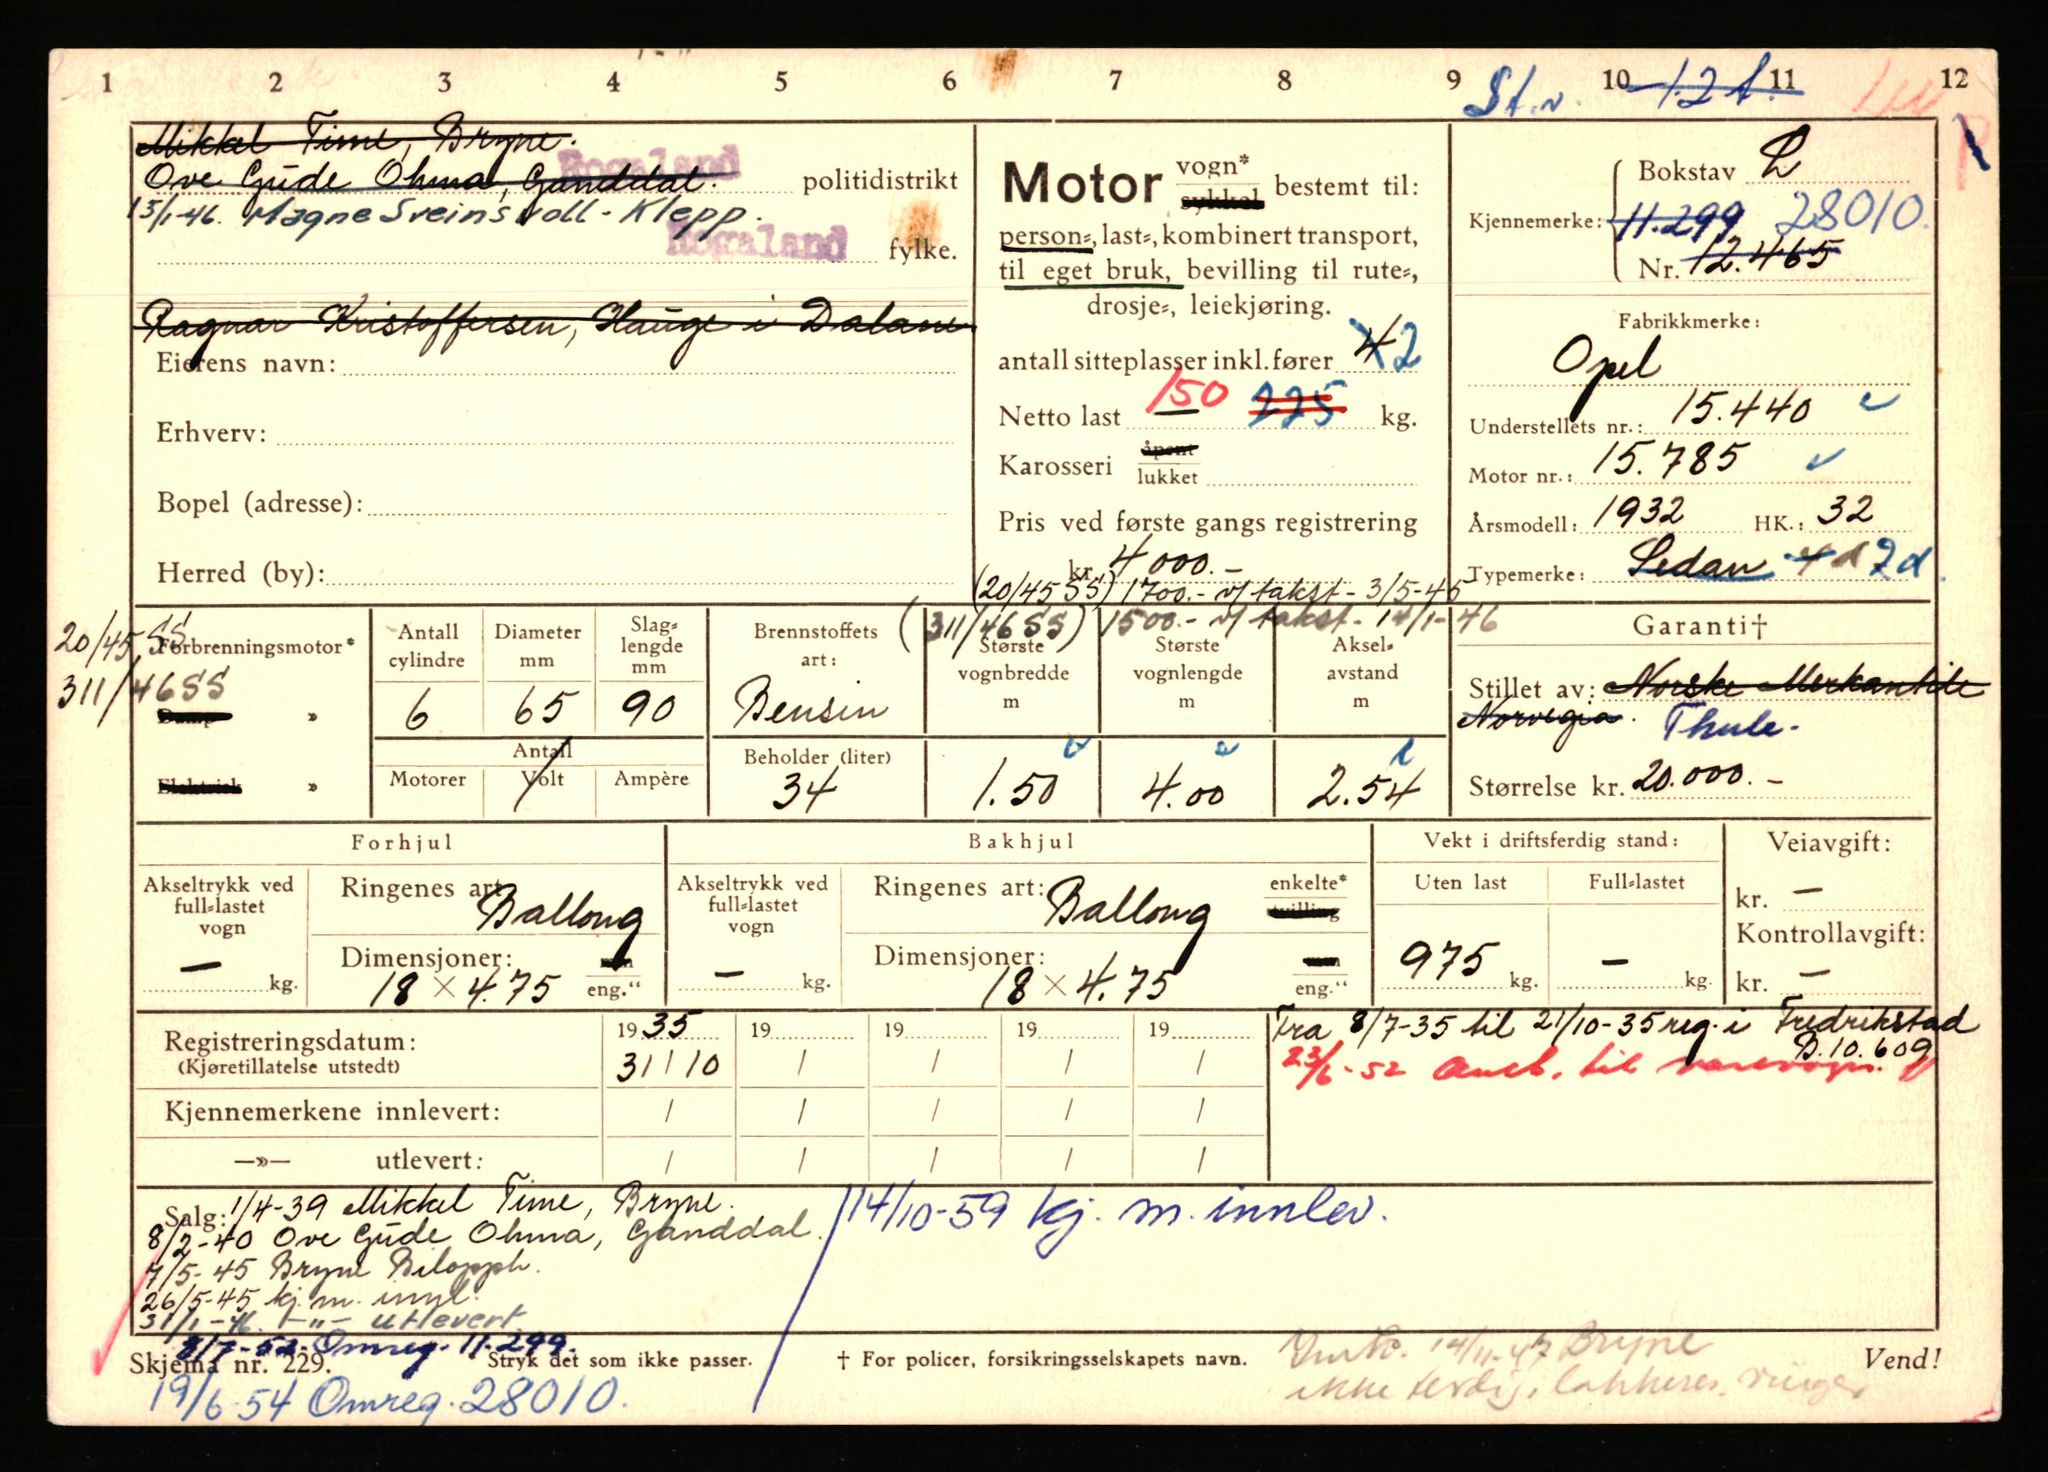 1 2 3 4 5 6 7 8 9 10 11 12
St.v. 12 t.
Mikkel Time, Bryne.
Rogaland
Ove Gude Ohma, Ganddal. politidistrikt
15/1-46. Magne Sveinsvoll - Klepp.
Rogaland
fylke.
Ragnar Kristoffersen, Hauge i Dalane
Eierens navn:
Erhverv:
Bopel (adresse):
Herred (by):
Motor vogn* sykkel bestemt til:
person-, last-, kombinert transport,
til eget bruk, bevilling til rute-,
drosje-, leiekjøring.
antall sitteplasser inkl. fører 4 2
Netto last — 150 225 kg.
Karosseri åpent lukket
Pris ved første gangs registrering
kr. 4000.-
(20/45 SS) 1700.- v/ takst - 3/5-45
(311/46 SS) 1500.- v/ takst - 14/1-46
Bokstav L
Kjennemerke: 11.299 28010.
Nr. 12.465
Fabrikkmerke:
Opel
Understellets nr.: 15.440
Motor nr.: 15.785
Årsmodell: 1932 HK.: 32
Typemerke: Sedan 4d 2d.
20/45 SS
Forbrenningsmotor*
311/46 SS
Damp »
Elektrisk »
Antall cylindre
6
Diameter mm
65
Slag-lengde mm
90
Antall
Motorer Volt Ampère
Brennstoffets art:
Bensin
Beholder (liter)
34
Største vognbredde m
1.50
Største vognlengde m
4.00
Aksel-avstand m
2.54
Garanti†
Stillet av: Norske Merkantile
Norvegia. Thule.
Størrelse kr. 20.000.-
Forhjul
Akseltrykk ved full-lastet vogn
— kg.
Ringenes art: Ballong
Dimensjoner: 18 × 4.75 mm eng."
Bakhjul
Akseltrykk ved full-lastet vogn
— kg.
Ringenes art: Ballong enkelte* tvilling
Dimensjoner: 18 × 4.75 mm eng."
Vekt i driftsferdig stand:
Uten last
975 kg.
Full-lastet
— kg.
Veiavgift:
kr. —
Kontrollavgift:
kr. —
Registreringsdatum: 1935 19 19 19 19
(Kjøretillatelse utstedt) 31/10 / / / /
Kjennemerkene innlevert: / / / / /
—»— utlevert: / / / / /
Fra 8/7-35 til 21/10-35 reg. i Fredrikstad
B.10.609
23/6-52 Anb. til varevogn.
Salg: 1/4-39 Mikkel Time, Bryne.
8/2-40 Ove Gude Ohma, Ganddal.
7/5-45 Bryne Bilopph.
26/5-45 kj. m. innl.
31/1-46. —"— utlevert.
8/7-52 Omreg. 11.299.
14/10-59 kj. m. innlev.
Skjema nr. 229. * Stryk det som ikke passer. † For policer, forsikringsselskapets navn. Vend!
19/6-54 Omreg. 28010.
14/11-47 Bryne
ikke ferdig,